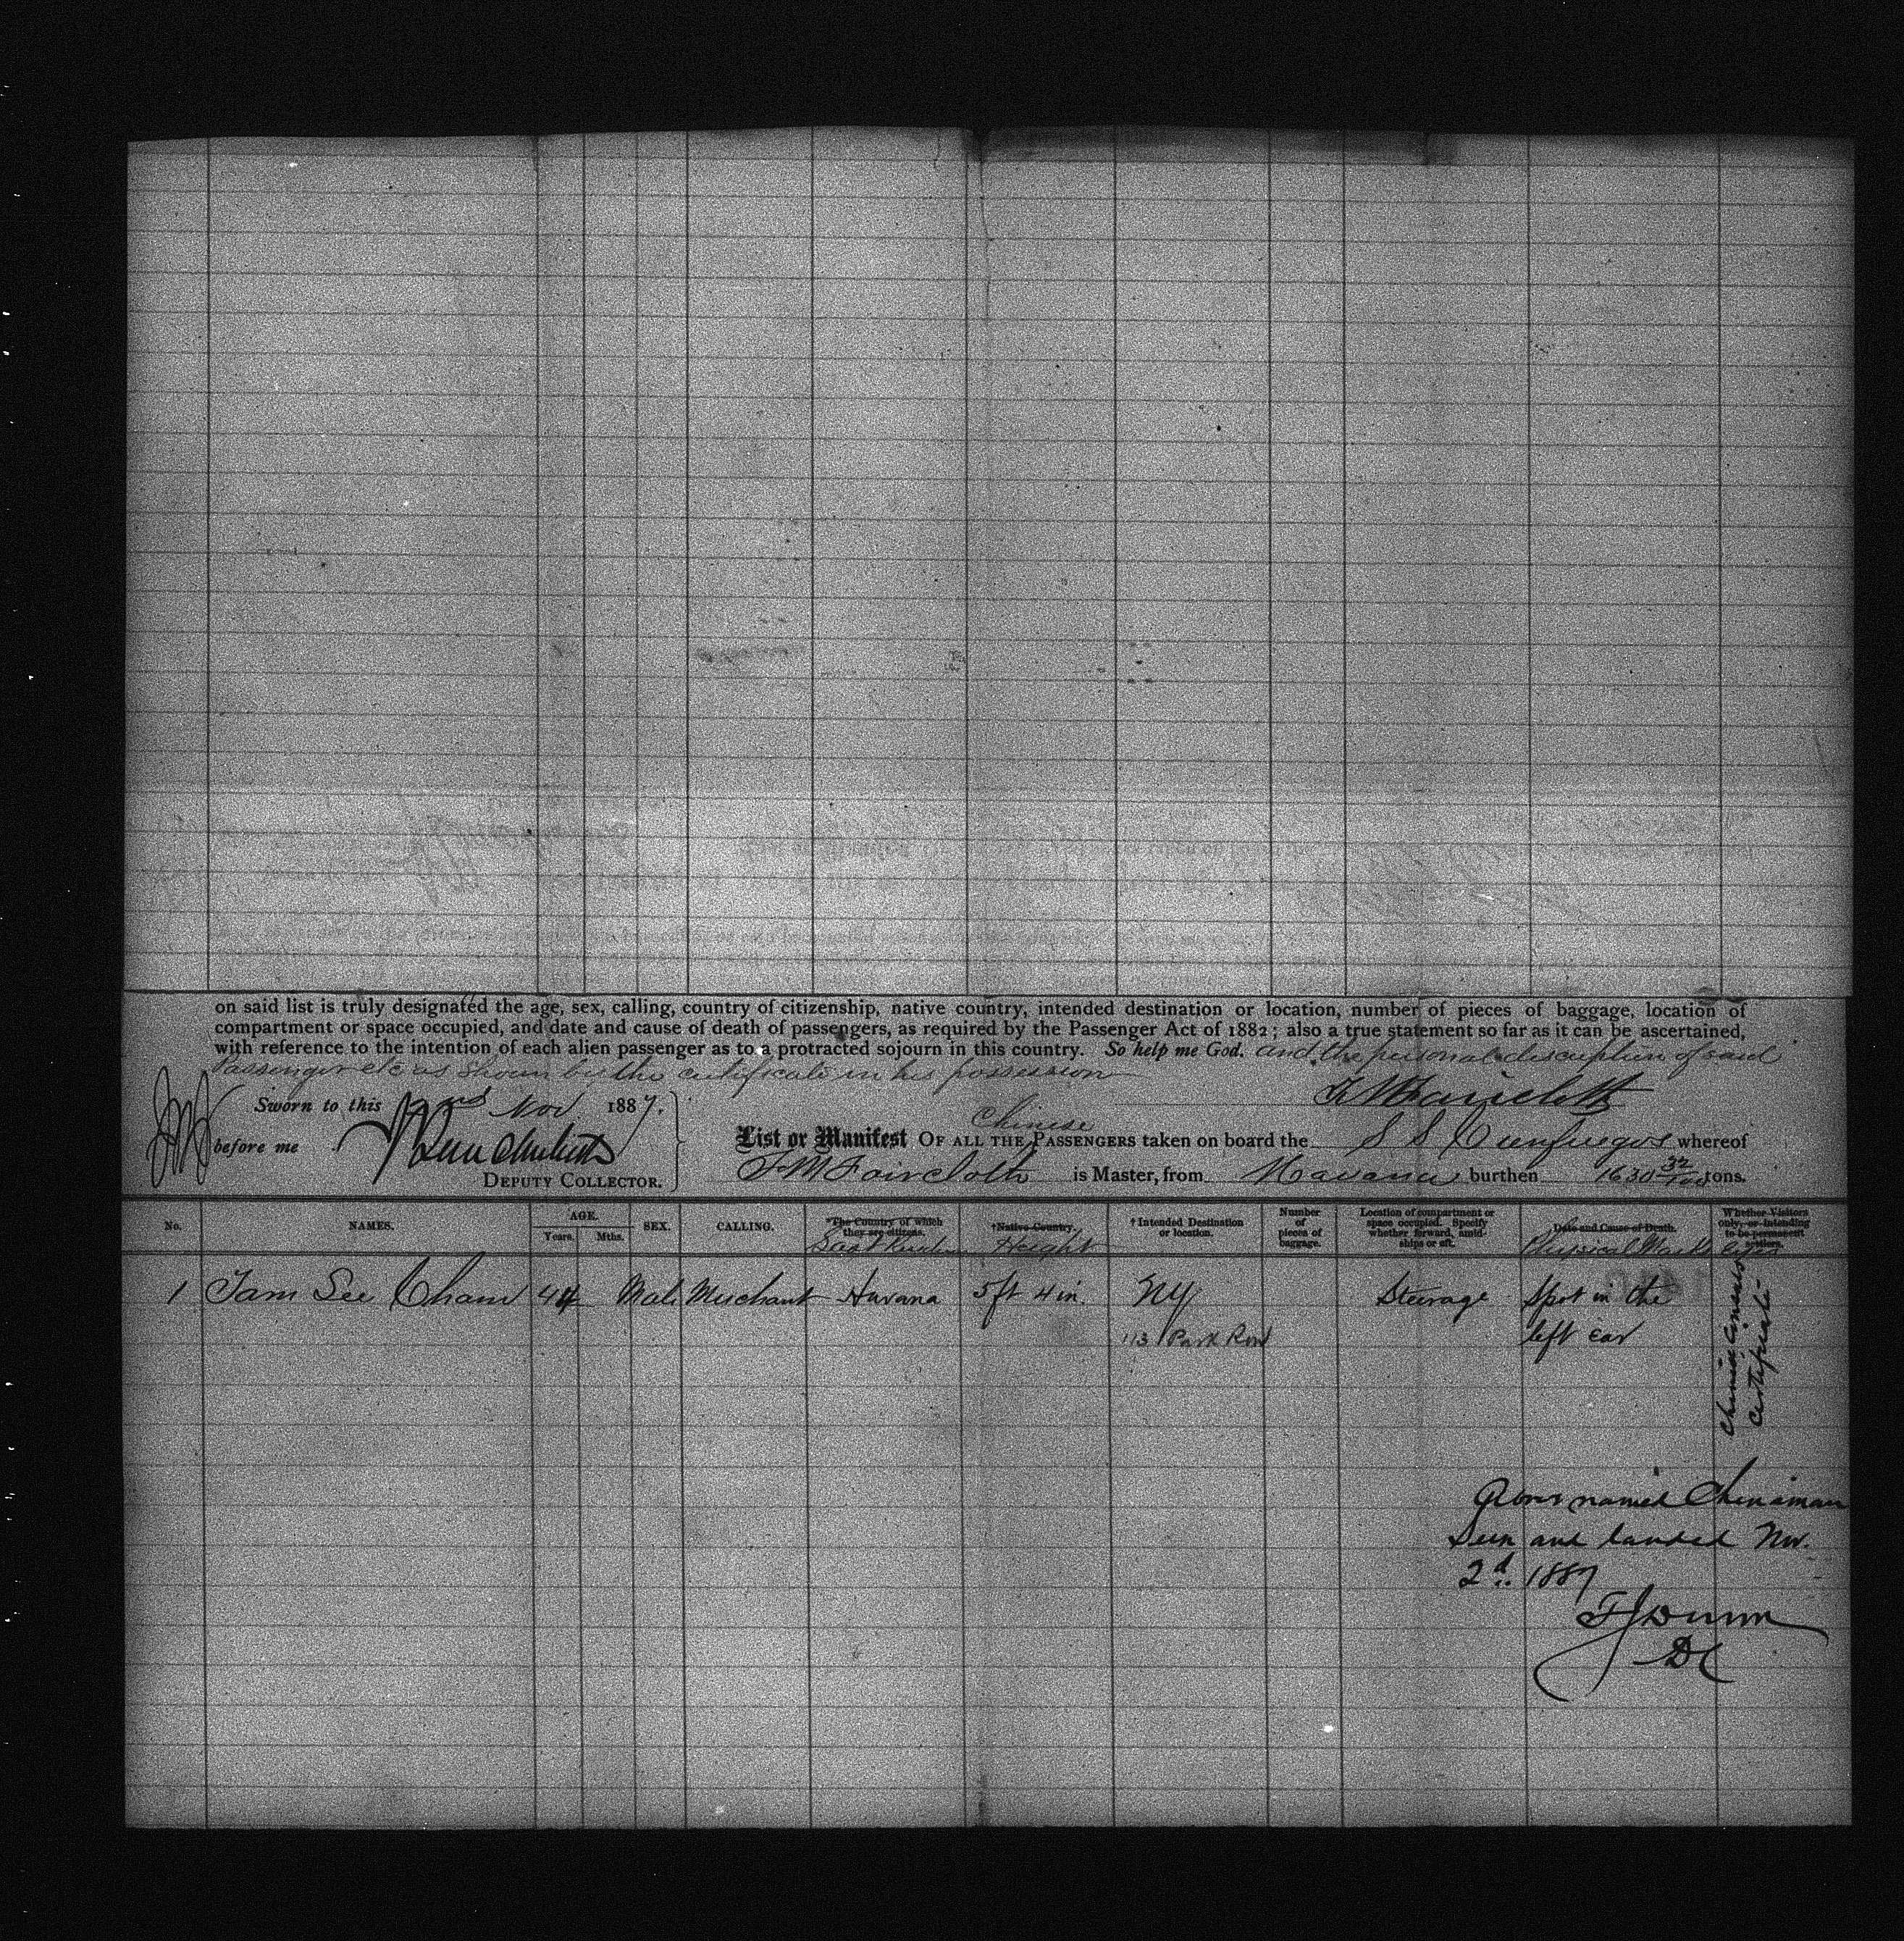 on said list is truly designated the age, sex, calling, country of citizenship, native country, intended destination or location, number of pieces of baggage, location of
compartment or space occupied, and date and cause of death of passengers, as required by the Passenger Act of 1882; also a true statement so far as it can be ascertained,
with reference to the intention of each alien passenger as to a protracted sojourn in this country. So help me God. and the personal description of said
Passenger etc as shown by the certificate in his possession
F M Faircloth
Sworn to this 2nd Nov. 1887.
before me
DEPUTY COLLECTOR.
Chinese
List or Manifest OF ALL THE PASSENGERS taken on board the S S Cienfuegos whereof
F M Faircloth is Master, from Havana burthen 1630 32/100 tons.
No. NAMES. AGE. Years. Mths. SEX. CALLING. *The Country of which they are citizens. †Native Country. †Intended Destination or location. Number of pieces of baggage. Location of compartment or space occupied. Specify whether forward, amidships or aft. Date and Cause of Death. Whether Visitors only, or intending to be permanent settlers.
Last Residence Height Physical Marks
1 Tam See Cham 44 Male Merchant Havana 5 ft 4 in. NY Steerage Spot in the
113 Park Row left ear
certificate
Above named Chinaman
Seen and landed Nov.
2d. 1887
F J Dunn
DC